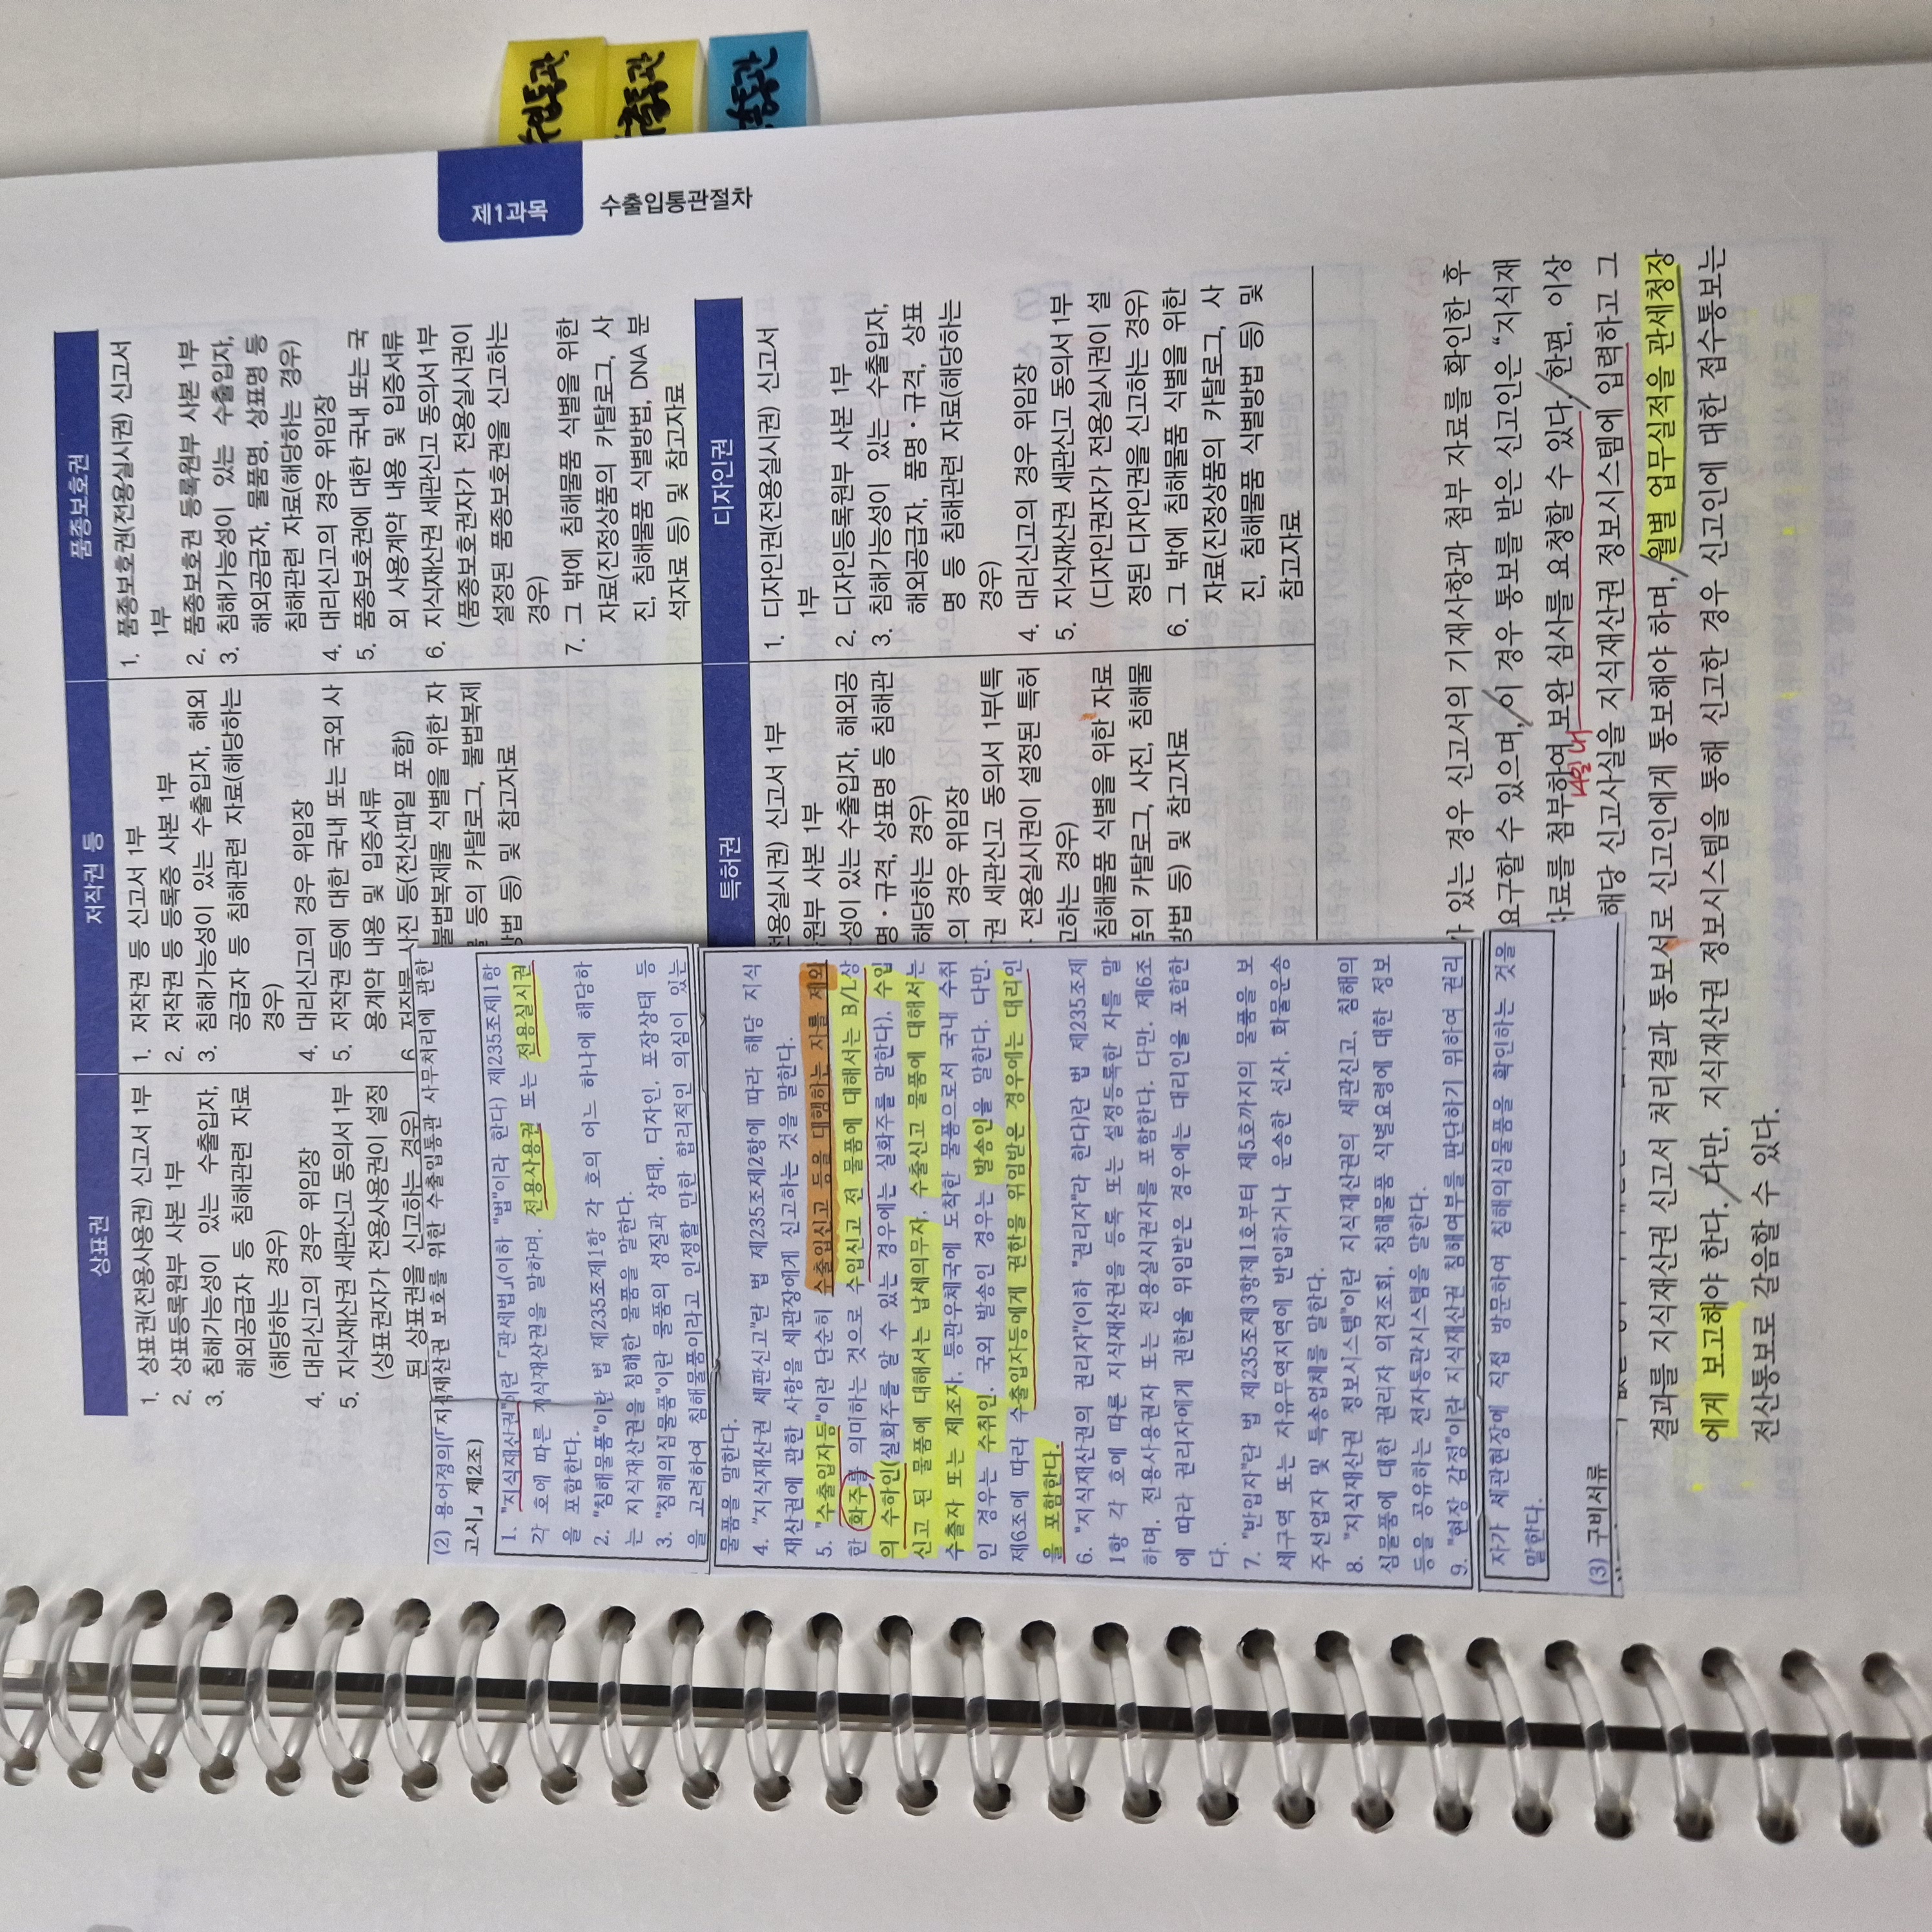 수출통관
제1과목
수출입통관절차
상표권
저작권 등
품종보호권
1. 상표권(전용사용권) 신고서 1부
2. 상표등록원부 사본 1부
3. 침해가능성이 있는 수출입자,
해외공급자 등 침해관련 자료
(해당하는 경우)
4. 대리신고의 경우 위임장
5. 지식재산권 세관신고 동의서 1부
(상표권자가 전용사용권이 설정
된 상표권을 신고하는 경우)
1. 저작권 등 신고서 1부
2. 저작권 등 등록증 사본 1부
3. 침해가능성이 있는 수출입자, 해외
공급자 등 침해관련 자료(해당하는
경우)
4. 대리신고의 경우 위임장
5. 저작권 등에 대한 국내 또는 국외 사
용계약 내용 및 입증서류
6. 저작물 사진 등(전산파일 포함)
불법복제물 식별을 위한 자
등의 카탈로그, 불법복제
방법 등) 및 참고자료
1. 품종보호권(전용실시권) 신고서
1부
2. 품종보호권 등록원부 사본 1부
3. 침해가능성이 있는 수출입자,
해외공급자, 물품명, 상표명 등
침해관련 자료(해당하는 경우)
4. 대리신고의 경우 위임장
5. 품종보호권에 대한 국내 또는 국
외 사용계약 내용 및 입증서류
6. 지식재산권 세관신고 동의서 1부
(품종보호권자가 전용실시권이
설정된 품종보호권을 신고하는
경우)
7. 그 밖에 침해물품 식별을 위한
자료(진정상품의 카탈로그, 사
진, 침해물품 식별방법, DNA 분
석자료 등) 및 참고자료
특허권
디자인권
전용실시권) 신고서 1부
원부 사본 1부
성이 있는 수출입자, 해외공
명·규격, 상표명 등 침해관
해당하는 경우)
의 경우 위임장
권 세관신고 동의서 1부(특
전용실시권이 설정된 특허
고하는 경우)
침해물품 식별을 위한 자료
품의 카탈로그, 사진, 침해물
방법 등) 및 참고자료
1. 디자인권(전용실시권) 신고서
1부
2. 디자인등록원부 사본 1부
3. 침해가능성이 있는 수출입자,
해외공급자, 품명·규격, 상표
명 등 침해관련 자료(해당하는
경우)
4. 대리신고의 경우 위임장
5. 지식재산권 세관신고 동의서 1부
(디자인권자가 전용실시권이 설
정된 디자인권을 신고하는 경우)
6. 그 밖에 침해물품 식별을 위한
자료(진정상품의 카탈로그, 사
진, 침해물품 식별방법 등) 및
참고자료
(2) 용어정의(「지식재산권 보호를 위한 수출입통관 사무처리에 관한
고시」 제2조)
1. "지식재산권"이란 「관세법」(이하 "법"이라 한다) 제235조제1항
각 호에 따른 지식재산권을 말하며, 전용사용권 또는 전용실시권
을 포함한다.
2. "침해물품"이란 법 제235조제1항 각 호의 어느 하나에 해당하
는 지식재산권을 침해한 물품을 말한다.
3. "침해의심물품"이란 물품의 성질과 상태, 디자인, 포장상태 등
을 고려하여 침해물품이라고 인정할 만한 합리적인 의심이 있는
물품을 말한다.
4. "지식재산권 세관신고"란 법 제235조제2항에 따라 해당 지식
재산권에 관한 사항을 세관장에게 신고하는 것을 말한다.
5. "수출입자등"이란 단순히 수출입신고 등을 대행하는 자를 제외
한 화주를 의미하는 것으로 수입신고 전 물품에 대해서는 B/L상
의 수하인(실화주를 알 수 있는 경우에는 실화주를 말한다), 수입
신고 된 물품에 대해서는 납세의무자, 수출신고 물품에 대해서는
수출자 또는 제조자, 통관우체국에 도착한 물품으로서 국내 수취
인 경우는 수취인, 국외 발송인 경우는 발송인을 말한다. 다만,
제6조에 따라 수출입자등에게 권한을 위임받은 경우에는 대리인
을 포함한다.
6. "지식재산권의 권리자"(이하 "권리자"라 한다)란 법 제235조제
1항 각 호에 따른 지식재산권을 등록 또는 설정등록한 자를 말
하며, 전용사용권자 또는 전용실시권자를 포함한다. 다만, 제6조
에 따라 권리자에게 권한을 위임받은 경우에는 대리인을 포함한
다.
7. "반입자"란 법 제235조제3항제1호부터 제5호까지의 물품을 보
세구역 또는 자유무역지역에 반입하거나 운송한 선사, 화물운송
주선업자 및 특송업체를 말한다.
8. "지식재산권 정보시스템"이란 지식재산권의 세관신고, 침해의
심물품에 대한 권리자 의견조회, 침해물품 식별요령에 대한 정보
등을 공유하는 전자통관시스템을 말한다.
9. "현장 감정"이란 지식재산권 침해여부를 판단하기 위하여 권리
자가 세관현장에 직접 방문하여 침해의심물품을 확인하는 것을
말한다.
(3) 구비서류
있는 경우 신고서의 기재사항과 첨부 자료를 확인한 후
요구할 수 있으며, 이 경우 통보를 받은 신고인은 "지식재
자료를 첨부하여 보완 심사를 요청할 수 있다. 한편, 이상
14일내
해당 신고사실을 지식재산권 정보시스템에 입력하고 그
결과를 지식재산권 신고서 처리결과 통보서로 신고인에게 통보해야 하며, 월별 업무실적을 관세청장
에게 보고해야 한다. 다만, 지식재산권 정보시스템을 통해 신고한 경우 신고인에 대한 접수통보는
전산통보로 갈음할 수 있다.